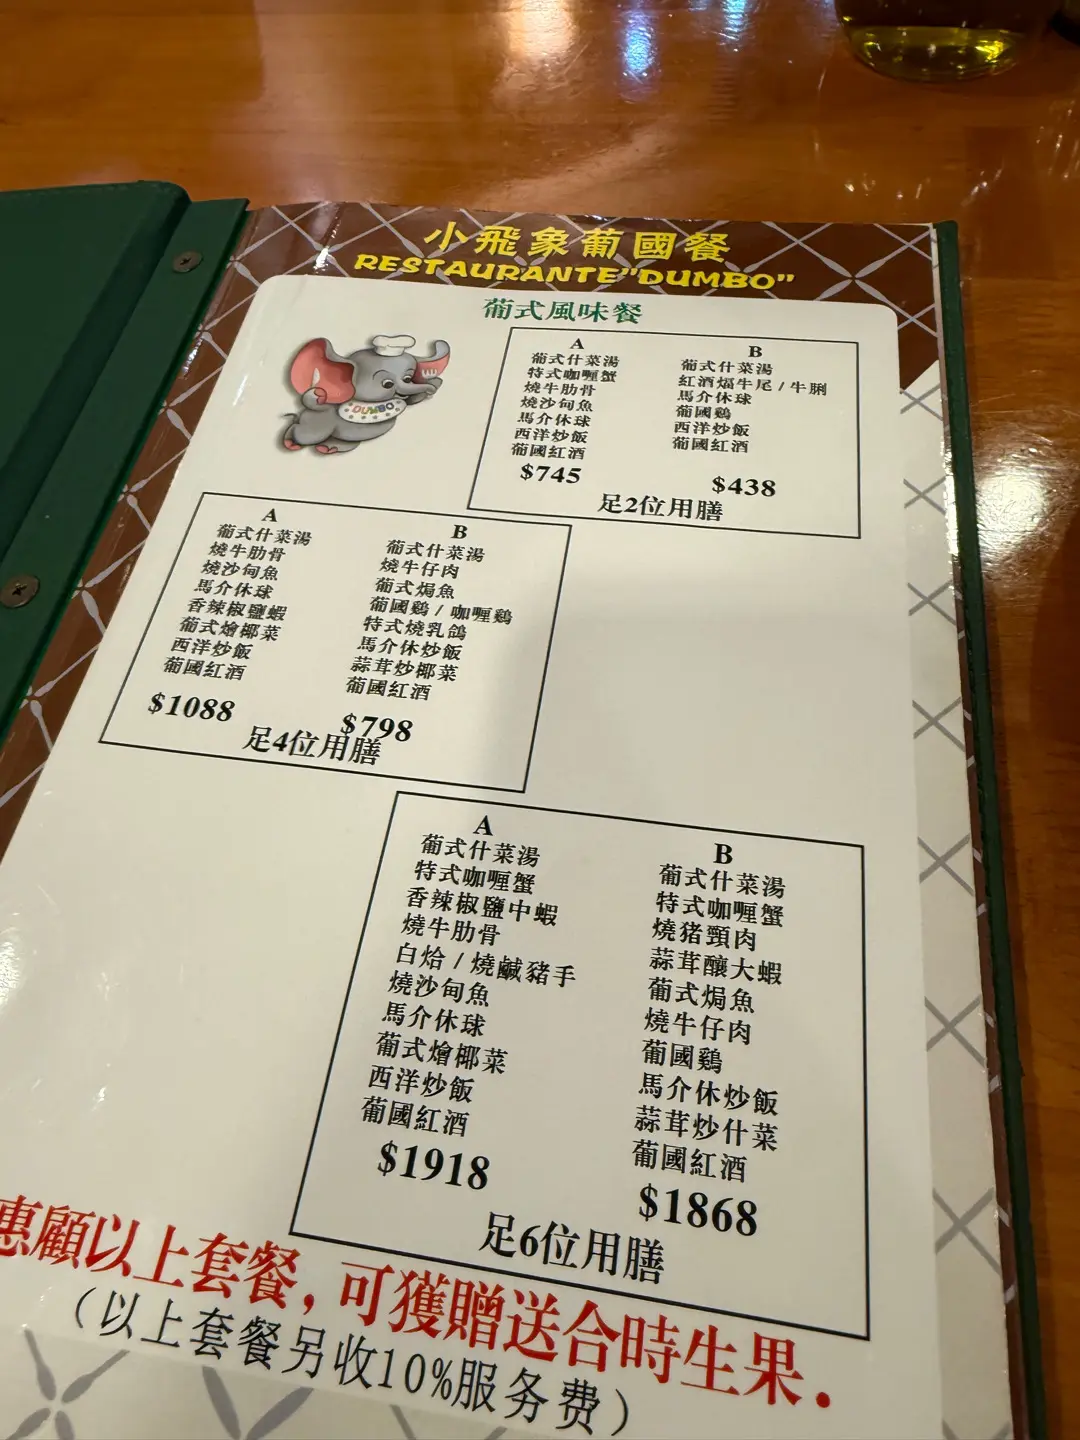 小飛象葡國餐
RESTAURANTE"DUMBO"
葡式風味餐
DUMBO
A
葡式什菜湯
特式咖喱蟹
燒牛肋骨
燒沙甸魚
馬介休球
西洋炒飯
葡國紅酒
$745
B
葡式什菜湯
紅酒焗牛尾/牛脷
馬介休球
葡國鷄
西洋炒飯
葡國紅酒
$438
足2位用膳
A
葡式什菜湯
燒牛肋骨
燒沙甸魚
馬介休球
香辣椒鹽蝦
葡式燴椰菜
西洋炒飯
葡國紅酒
$1088
B
葡式什菜湯
燒牛仔肉
葡式焗魚
葡國鷄/咖喱鷄
特式燒乳鴿
馬介休炒飯
蒜茸炒椰菜
葡國紅酒
$798
足4位用膳
A
葡式什菜湯
特式咖喱蟹
香辣椒鹽中蝦
燒牛肋骨
白烚/燒鹹豬手
燒沙甸魚
馬介休球
葡式燴椰菜
西洋炒飯
葡國紅酒
$1918
B
葡式什菜湯
特式咖喱蟹
燒猪頸肉
蒜茸釀大蝦
葡式焗魚
燒牛仔肉
葡國鷄
馬介休炒飯
蒜茸炒什菜
葡國紅酒
$1868
足6位用膳
惠顧以上套餐,可獲贈送合時生果.
(以上套餐另收10%服务费)